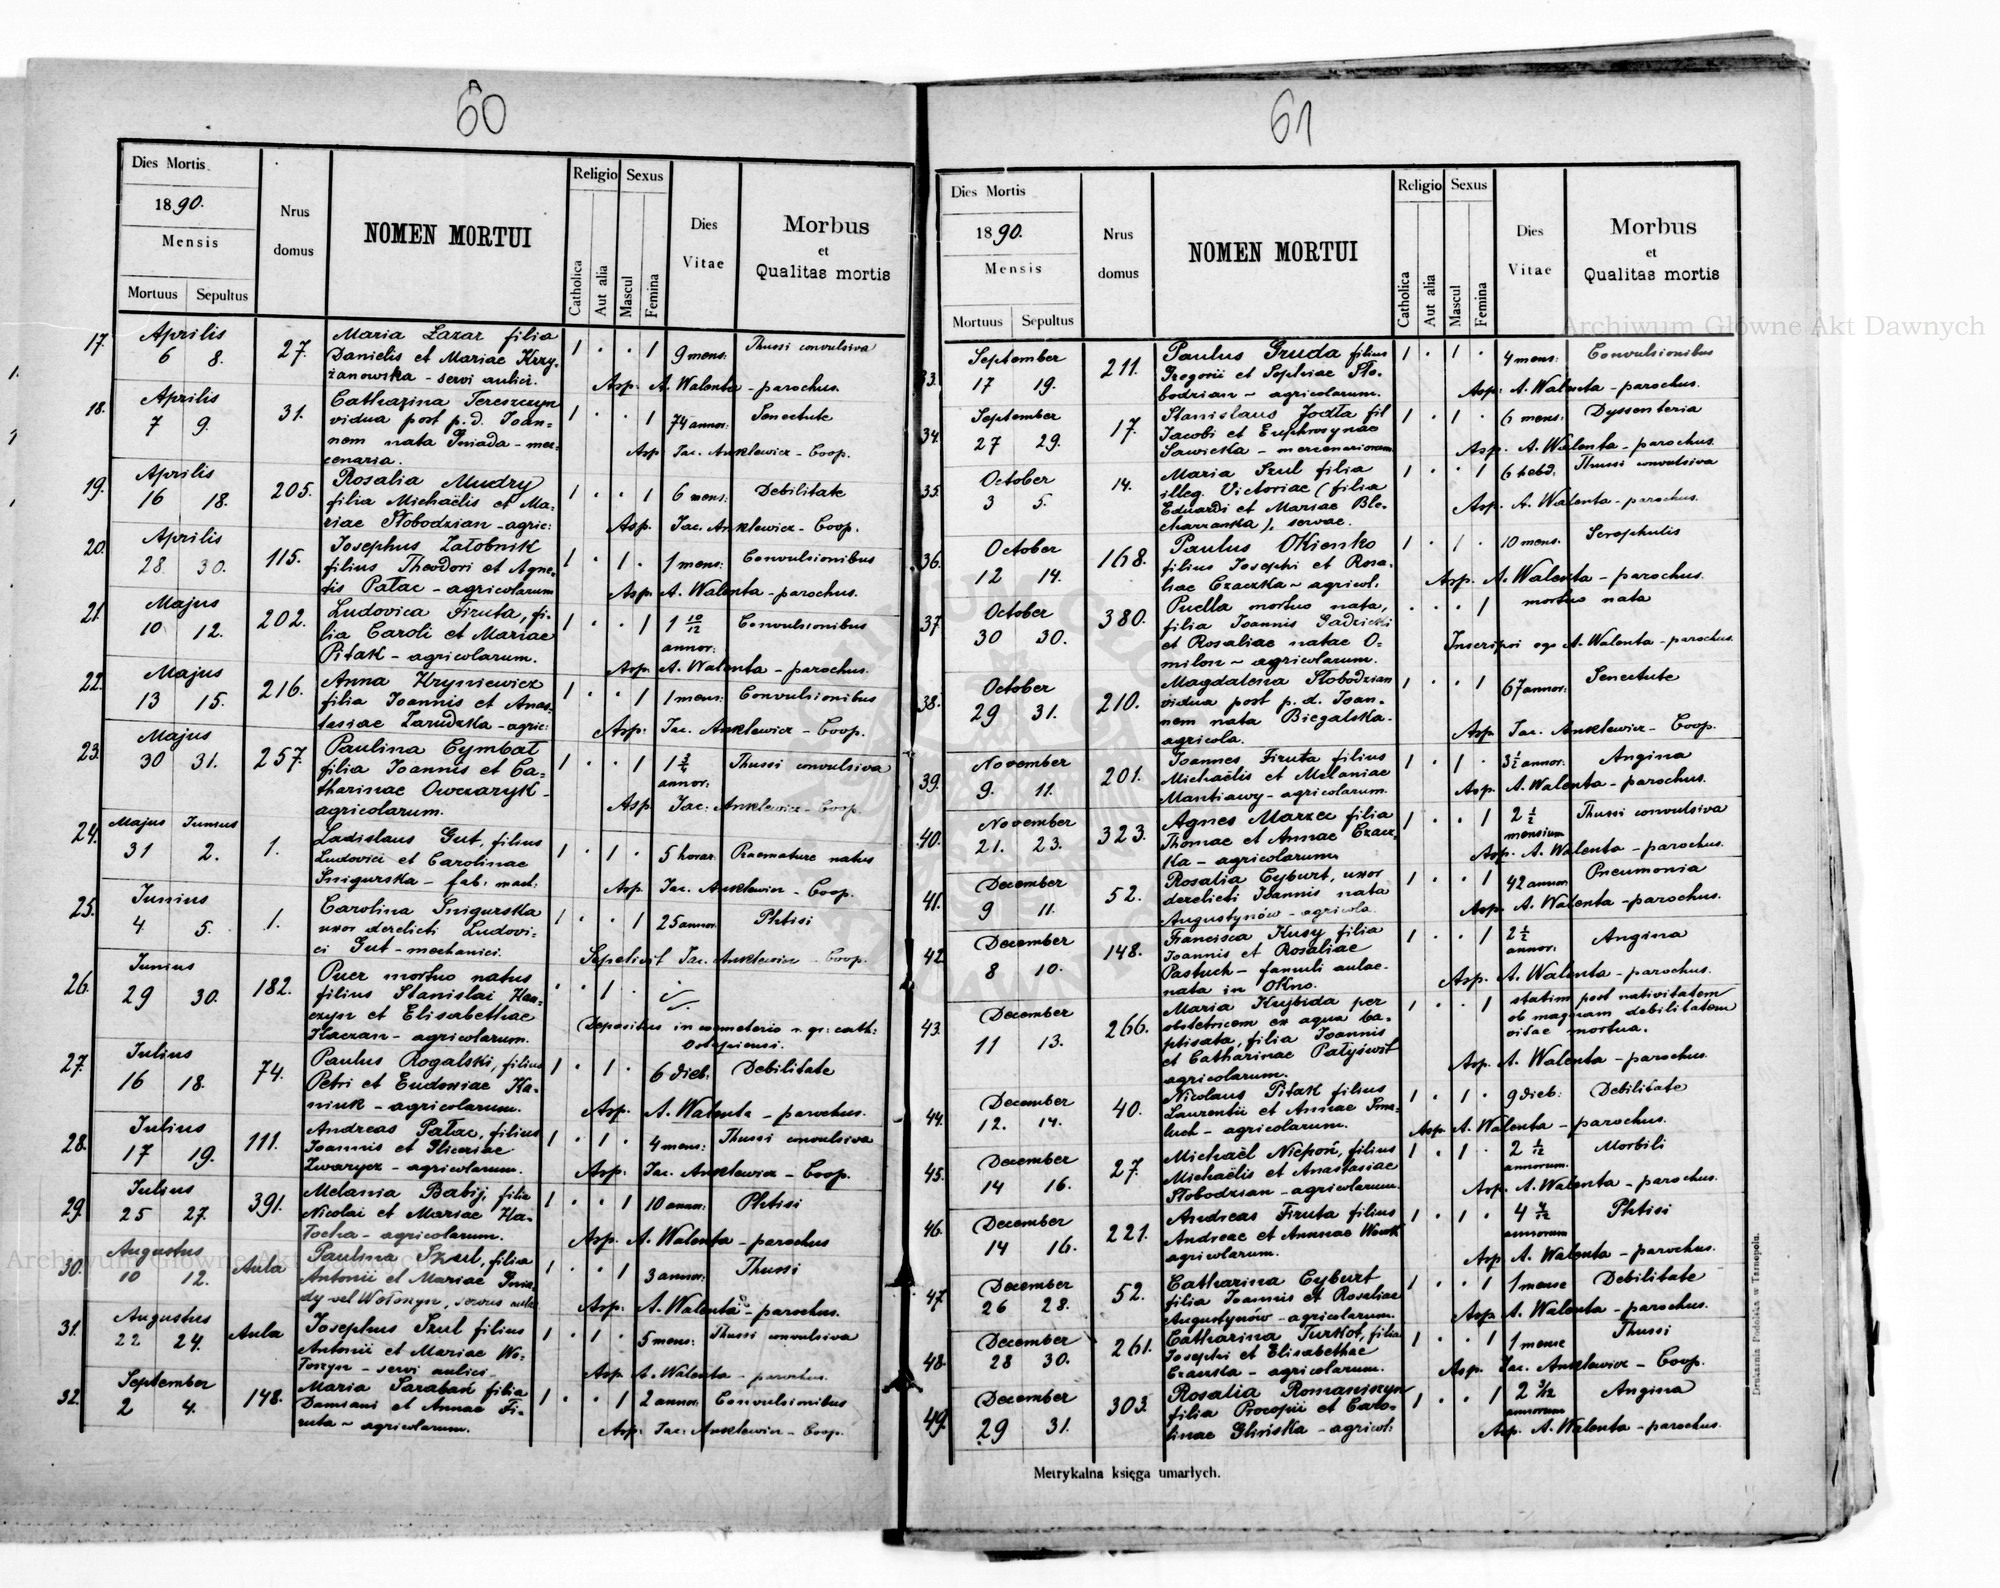 60
Dies Mortis
1890.
Mensis
Mortuus Sepultus
Nrus domus
NOMEN MORTUI
Religio Sexus
Catholica
Aut alia
Mascul
Femina
Dies Vitae
Morbus
et
Qualitas mortis
17. Aprilis 27. Maria Łazar filia 1 . . 1 9 mens: Thussi convulsiva
6 8. Danielis et Mariae Krzy-
żanowska - servi aulici. Asp. A. Walenta - parochus.
18. Aprilis 31. Catharina Tereszczyn 1 . . 1 74 annor: Senectute
7 9. vidua post p. d. Joan-
nem nata Gniada - mer-
cenaria. Asp Jac. Anklewicz - Coop.
19. Aprilis 205. Rosalia Mudry 1 . . 1 6 mens: Debilitate
16 18. filia Michaëlis et Ma-
riae Słobodzian - agric: Asp. Jac. Anklewicz - Coop.
20. Aprilis 115. Josephus Załobnik 1 . 1 . 1 mens: Convulsionibus
28. 30. filius Theodori et Agne-
tis Pałac - agricolarum Asp. A. Walenta - parochus.
21. Majus 202. Ludovica Firuta, fi- 1 . . 1 1 10/12 annor: Convulsionibus
10 12. lia Caroli et Mariae
Pitak - agricolarum. Asp. A. Walenta - parochus.
22. Majus 216. Anna Hryniewicz 1 . . 1 1 mens: Convulsionibus
13 15. filia Joannis et Anas-
tasiae Zarudzka - agric: Asp: Jac. Anklewicz - Coop.
23. Majus 257. Paulina Cymbał 1 . . 1 1 3/4 annor: Thussi convulsiva
30 31. filia Joannis et Ca-
tharinae Owczaryk -
agricolarum. Asp Jac: Anklewicz - Coop.
24. Majus Junius 1. Ladislaus Gut, filius 1 . 1 . 5 horar: Praemature natus
31 2. Ludovici et Carolinae
Snigurska - fab: mach: Asp. Jac. Anklewicz - Coop.
25. Junius 1. Carolina Snigurska 1 . . 1 25 annor. Phtisi
4 5. uxor derelicti Ludovi-
ci Gut - mechanici. Sepelivit Jac. Anklewicz - Coop.
26. Junius 182. Puer mortuo natus . . 1 .
29 30. filius Stanislai Han-
czyn et Elisabethae Depositus in coemeterio r. gr: cath:
Kaczan - agricolarum.
27. Julius 74. Paulus Rogalski, filius 1 . 1 . 6 dieb: Debilitate
16 18. Petri et Eudoxiae Ha-
niuk - agricolarum. Asp. A. Walenta - parochus.
28. Julius 111. Andreas Pałac, filius 1 . 1 . 4 mens: Thussi convulsiva
17 19. Joannis et Gliceriae
Zwarycz - agricolarum. Asp: Jac: Anklewicz - Coop.
29. Julius 391. Melania Babij, filia 1 . . 1 10 annor: Phtisi
25 27. Nicolai et Mariae Ha-
łocha - agricolarum. Asp. A. Walenta - parochus
30. Augustus Aula Paulina Szul, filia . . 1 3 annor: Thussi
10 12. Antonii et Mariae Gnia-
dy vel Wołoszyn, servus aulic. Asp: A. Walenta - parochus.
31. Augustus Aula Josephus Szul filius 1 . 1 . 5 mens: Thussi convulsiva
22 24. Antonii et Mariae Wo-
łoszyn - servi aulici Asp A. Walenta - parochus.
32. September 148. Maria Saraban filia 1 . . 1 2 annor: Convulsionibus
2 4. Damiani et Annae Fi-
ruta - agricolarum. Asp: Jac: Anklewicz - Coop.
61
Dies Mortis
1890.
Mensis
Mortuus Sepultus
Nrus domus
NOMEN MORTUI
Religio Sexus
Catholica
Aut alia
Mascul
Femina
Dies Vitae
Morbus
et
Qualitas mortis
33. September 211. Paulus Gruda filius 1 . 1 . 4 mens: Convulsionibus
17 19. Gregorii et Sophiae Sło-
bodzian - agricolarum. Asp: A. Walenta - parochus.
34. September 17. Stanislaus Jodła fil 1 . 1 . 6 mens: Dyssenteria
27 29. Jacobi et Euphrosynae
Sawicka - mercenariorum Asp. A. Walenta - parochus.
35. October 14. Maria Szul filia 1 . . 1 6 hebd. Thussi convulsiva
3 5. illeg. Victoriae (filia
Eduardi et Mariae Ble-
charzanka), servae. Asp. A. Walenta - parochus.
36. October 168. Paulus Okienko 1 . 1 . 10 mens. Scrophulis
12 14. filius Josephi et Rosa-
liae Czaczka - agricol. Asp. A. Walenta - parochus.
37. October 380. Puella mortuo nata, . . . 1 mortuo nata
30 30. filia Joannis Gadzicki
et Rosaliae natae O-
milon - agricolarum. Inscripsi ego A. Walenta - parochus.
38. October 210. Magdalena Słobodzian 1 . . 1 67 annor: Senectute
29 31. vidua post p. d. Joan-
nem nata Biegalska -
agricola. Asp. Jac. Anklewicz - Coop.
39. November 201. Joannes Firuta filius 1 . 1 . 3 1/2 annor: Angina
9. 11. Michaëlis et Melaniae
Mantiawy - agricolarum. Asp. A. Walenta - parochus.
40. November 323. Agnes Marzec filia 1 . . 1 2 1/2 mensium Thussi convulsiva
21. 23. Thomae et Annae Czacz-
ka - agricolarum. Asp. A. Walenta - parochus.
41. December 52. Rosalia Cyburt, uxor 1 . . 1 42 annor. Pneumonia
9 11. derelicti Joannis nata
Augustynów - agricola. Asp. A. Walenta - parochus.
42. December 148. Francisca Kusy filia 1 . . 1 2 1/2 annor: Angina
8 10. Joannis et Rosaliae
Pastuch - famuli aulae.
nata in Okno. Asp. A. Walenta - parochus.
43. December 266. Maria Krybida per 1 . . 1 statim post nativitatem
11 13. obstetricem ex aqua ba- ob magnam debilitatem
ptisata, filia Joannis vitae mortua.
et Catharinae Pałyświt
agricolarum. Asp. A. Walenta - parochus.
44. December 40. Nicolaus Pitak filius 1 . 1 . 9 dieb: Debilitate
12. 14. Laurentii et Annae Sma-
luch - agricolarum. Asp. A. Walenta - parochus.
45. December 27. Michaël Niepoń, filius 1 . 1 . 2 1/12 annorum. Morbili
14 16. Michaëlis et Anastasiae
Słobodzian - agricolarum. Asp. A. Walenta - parochus.
46. December 221. Andreas Firuta filius 1 . 1 . 4 4/12 annorum Phtisi
14 16. Andreae et Annae Wowk
agricolarum. Asp A. Walenta - parochus.
47. December 52. Catharina Cyburt 1 . . 1 1 mense Debilitate
26 28. filia Joannis et Rosaliae
Augustynów - agricolarum. Asp A. Walenta - parochus.
48. December 261. Catharina Turkot, filia 1 . . 1 1 mense Thussi
28 30. Josephi et Elisabethae
Czauska - agricolarum. Asp. Jac. Anklewicz - Coop.
49. December 303. Rosalia Romaniszyn 1 . . 1 2 3/12 annorum Angina
29 31. filia Procopii et Caro-
linae Glińska - agricol: Asp. A. Walenta - parochus.
Metrykalna księga umarłych.
Drukarnia Podolska w Tarnopolu.
Archiwum Główne Akt Dawnych
Archiwum Główne Akt Dawnych